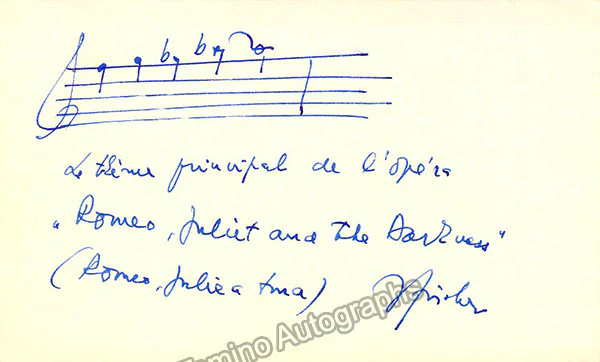 Le thème principal de l'opéra
„Romeo, Juliet and the Darkness"
(Romeo, Julie a tma) J Fischer
Tamino Autographs